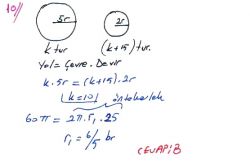 10//
5r
2r
k tur
(k+15) tur.
Yol = Çevre. Devir
k.5r = (k+15).2r
k=10
60π = 2π.r₁.25
r₁ = 6/5 br
CEVAP: B